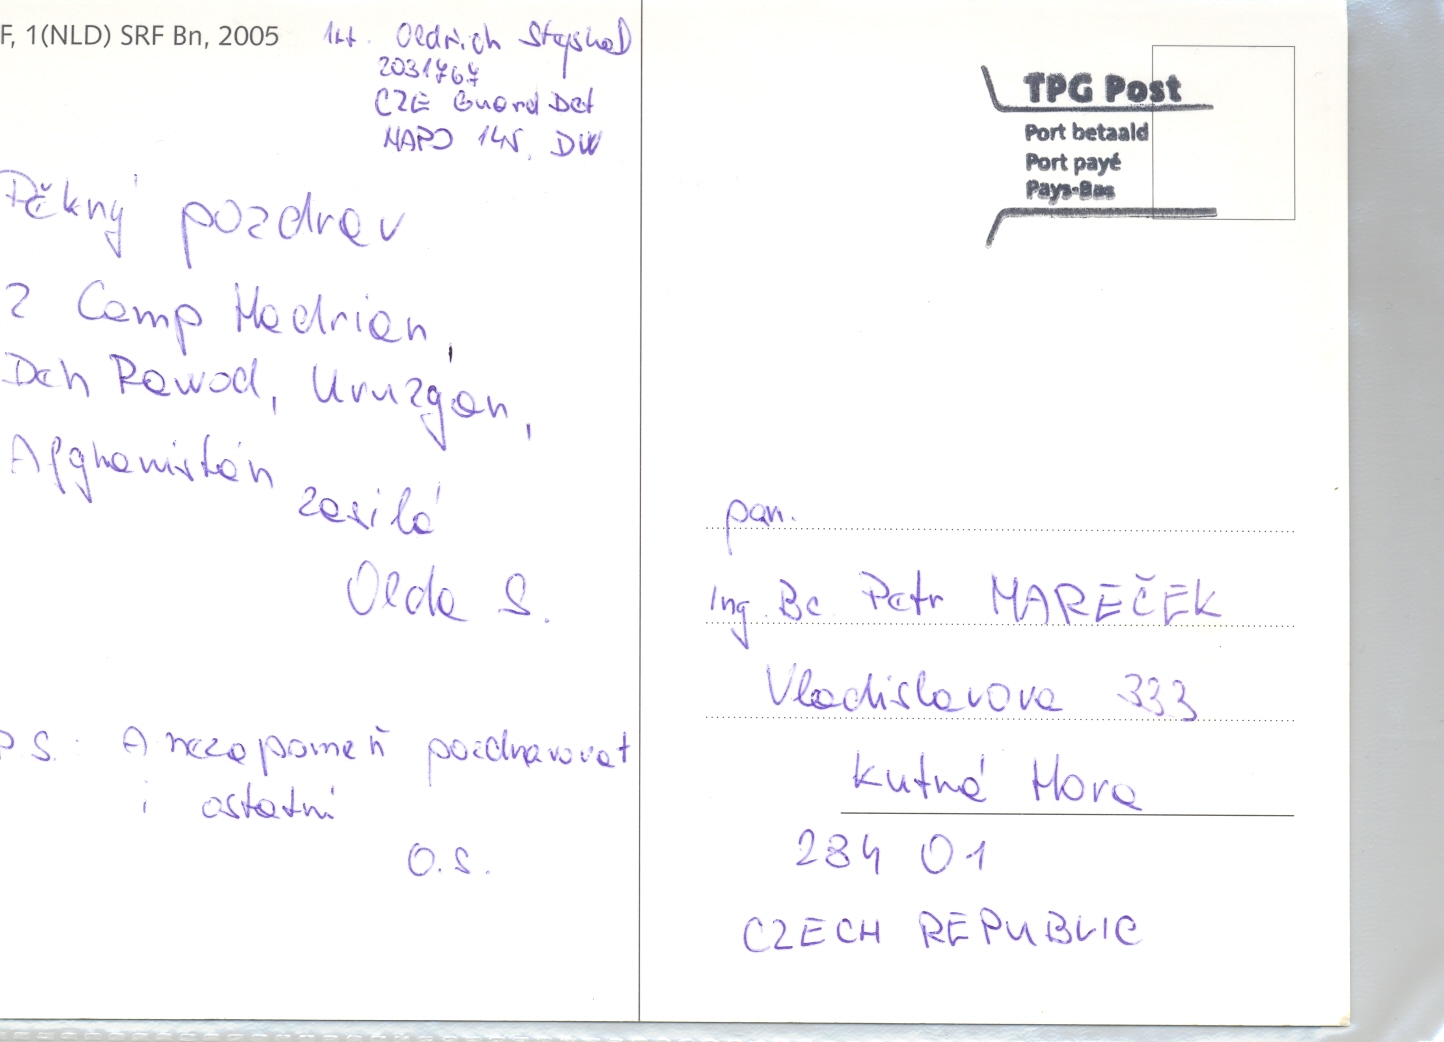 F, 1(NLD) SRF Bn, 2005
1Lt. Oldřich Stejskal
2031767
CZE Guard Det
NAPO 145, DW
Pěkný pozdrav
z Camp Hadrian,
Deh Rawod, Uruzgan,
Afghanistán
zasílá
Olda S.
P.S.: A nezapomeň pozdravovat
i ostatní
O.S.
TPG Post
Port betaald
Port payé
Pays-Bas
pan.
Ing. Bc Petr MAREČEK
Vladislavova 333
Kutná Hora
284 01
CZECH REPUBLIC